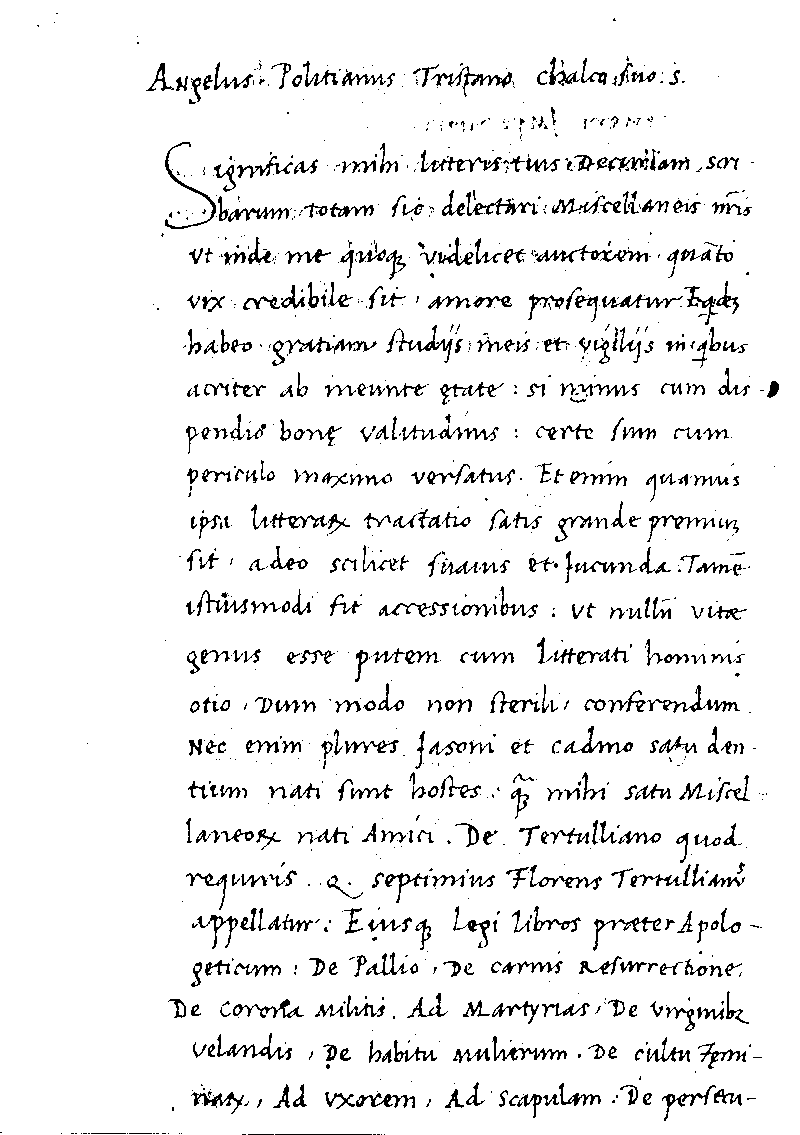 Angelus Politianus Tristano chalco suo. s.
Significas mihi litteris tuis Decurilam scri
barum totam sic delectari Miscellaneis nr̄is
vt inde me quoqꝫ videlicet auctorem quāto
vix credibile sit, amore prosequatur Eqdeꝫ
habeo gratiam studijs meis et vigilijs in qbus
acriter ab ineunte ętate : si minus cum dis-
pendio bonę valitudinis : certe sum cum
periculo maximo versatus. Et enim quamuis
ipsa litteraꝝ tractatio satis grande premiuꝫ
sit, adeo scilicet suauis et Jucunda. Tamē
istiusmodi fit accessionibus : vt nullū vitæ
genus esse putem cum litterati hominis
otio, Dum modo non sterili, conferendum
Nec enim plures Jasoni et cadmo satu den-
tium nati sunt hostes. qꝫ̃ mihi satu Miscel-
laneoꝝ nati Amici. De Tertulliano quod
requiris. Q. septimius Florens Tertullianꝰ
appellatur : Eiusqꝫ legi libros præter Apolo-
geticum : De Pallio, De carnis Resurrectione.
De Corona Militis. Ad Martyrias, De virginibꝫ
velandis, De habitu mulierum. De cultu Fęmi-
naꝝ, Ad vxorem, Ad scapulam. De persecu-